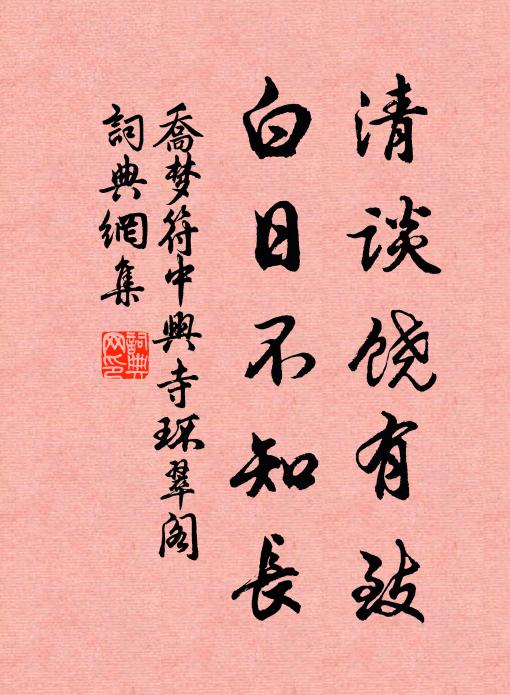 清谈饶有致
白日不知長
喬梦符中興寺环翠阁
詞典網集
詞典网印